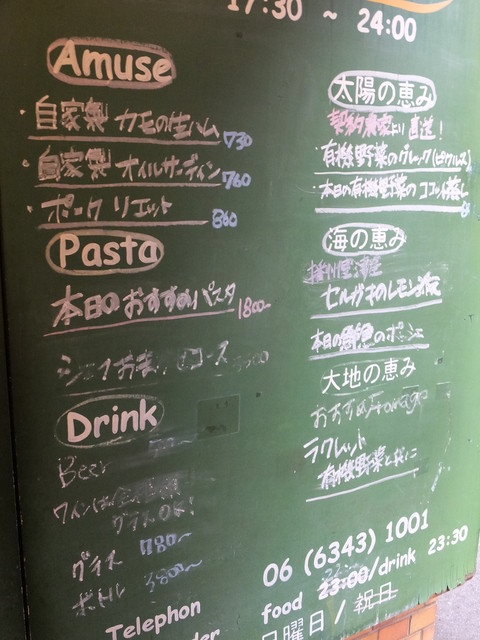 17:30 ~ 24:00
Amuse
・自家製 カモの生ハム 730
・自家製 オイルサーディン 760
・ポーク リエット 860
Pasta
本日のおすすめパスタ 1800~
コース
Drink
Beer
ワインは
グラスOK!
グラス 780~
ボトル 3800~
Telephon
太陽の恵み
契約農家より直送!
・有機野菜のグレック(ピクルス)
・本日の有機野菜のココット蒸し
海の恵み
セルガキのレモン
本日の のポシェ
大地の恵み
おすすめFromage
ラクレット
有機野菜と共に
06 (6343) 1001
food 23:00/drink 23:30
日曜日 / 祝日